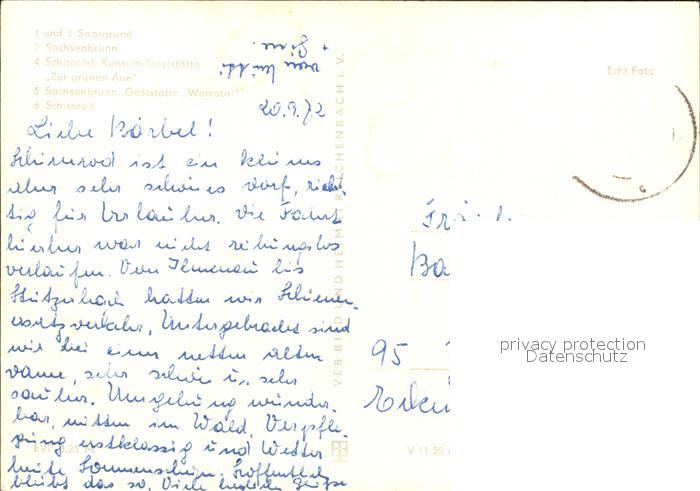 1 und 3 Saargrund
2 Sachsenbrunn
4 Schirnrod, Konsum-Gaststätte
„Zur grünen Aue"
5 Sachsenbrunn, Gaststätte „Werratal"
6 Schirnrod
20.9.72
Liebe Bärbel!
Schirnrod ist ein kleines
aber sehr schönes Dorf, rich-
tig für Urlauber. Die Fahrt
hierher war nicht reibungslos
verlaufen. Von Ilmenau bis
Stützerbach hatten wir Schienen-
ersatzverkehr. Untergebracht sind
wir bei einer netten alten
Dame, sehr schön u. sehr
sauber. Umgebung wunder-
bar, mitten im Wald. Verpfle-
gung erstklassig und Wetter
heute Sonnenschein. Hoffentlich
bleibt das so. Viele herzliche Grüße
von Mutti
+
VEB BILD UND HEIMAT REICHENBACH I. V.
Echt Foto
Ba
95
V 11 50
privacy protection
Datenschutz